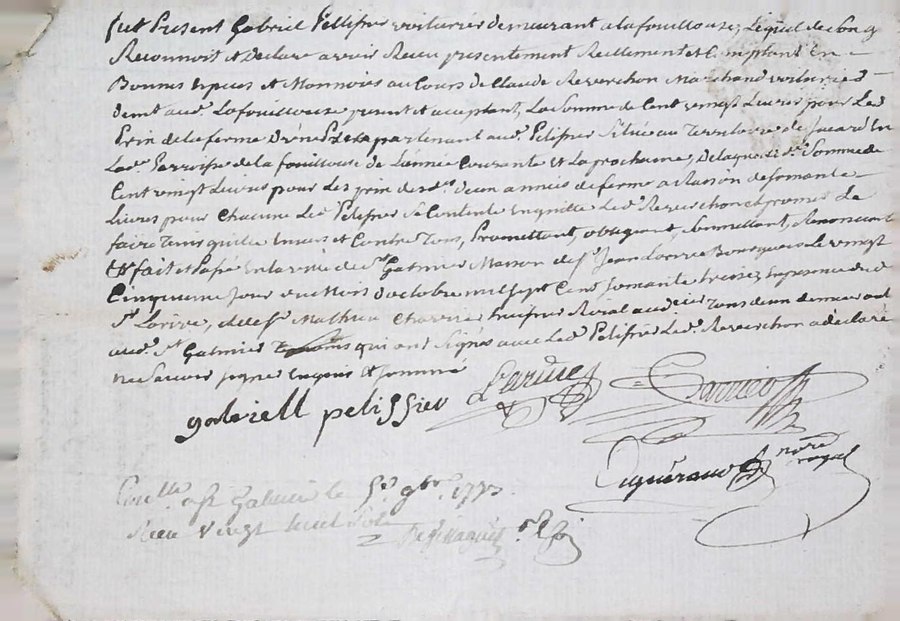 fut Present Gabriel Pellissier voiturier demeurant a la fouillouze, Lequel de son gré
Reconnoit et Declare avoir Receu presentement Reellement et Comptant En
Bonnes Especes et Monnoie au Cours de Claude Reverchon Marchand voiturier
demt aud. La fouillouze present et aceptant, La Somme de Cent vingt Livres pour Le
prix de la ferme apartenant aud. Pelissier Situé au Territoire de En
Lad. Parroisse de la fouillouse de L'année Courante et La prochaine, De laquelle de. Somme de
Cent vingt Livres pour Les prix de sd. deux années de ferme a Raison de soixante
Livres pour Chacune Led. Pelissier Se Contente En quitte Led. Reverchon et promet Le
faire tenir quitte Envers et Contre Tous, Promettant, obligeant, Soumettant, Renonceant
fait et Passé En la ville de St Galmier Maison de Sr. Jean Bourgeois Le vingt
Cinquieme Jour du Mois d'octobre mil sept Cent soixante treize En presence dud
Sr Larive, et de Sr Mathieu Charrier huissier Roial aud. Tous deux demeurant
aud. St Galmier qui ont Signés avec Led. Pelissier Led. Reverchon a declaré
ne Scavoir signer Enquis et sommé
gabriell pelissier Larive Charrier
nore royal
Conlle a St Galmier le 5e 9bre 1773.
Receu vingt huit sols